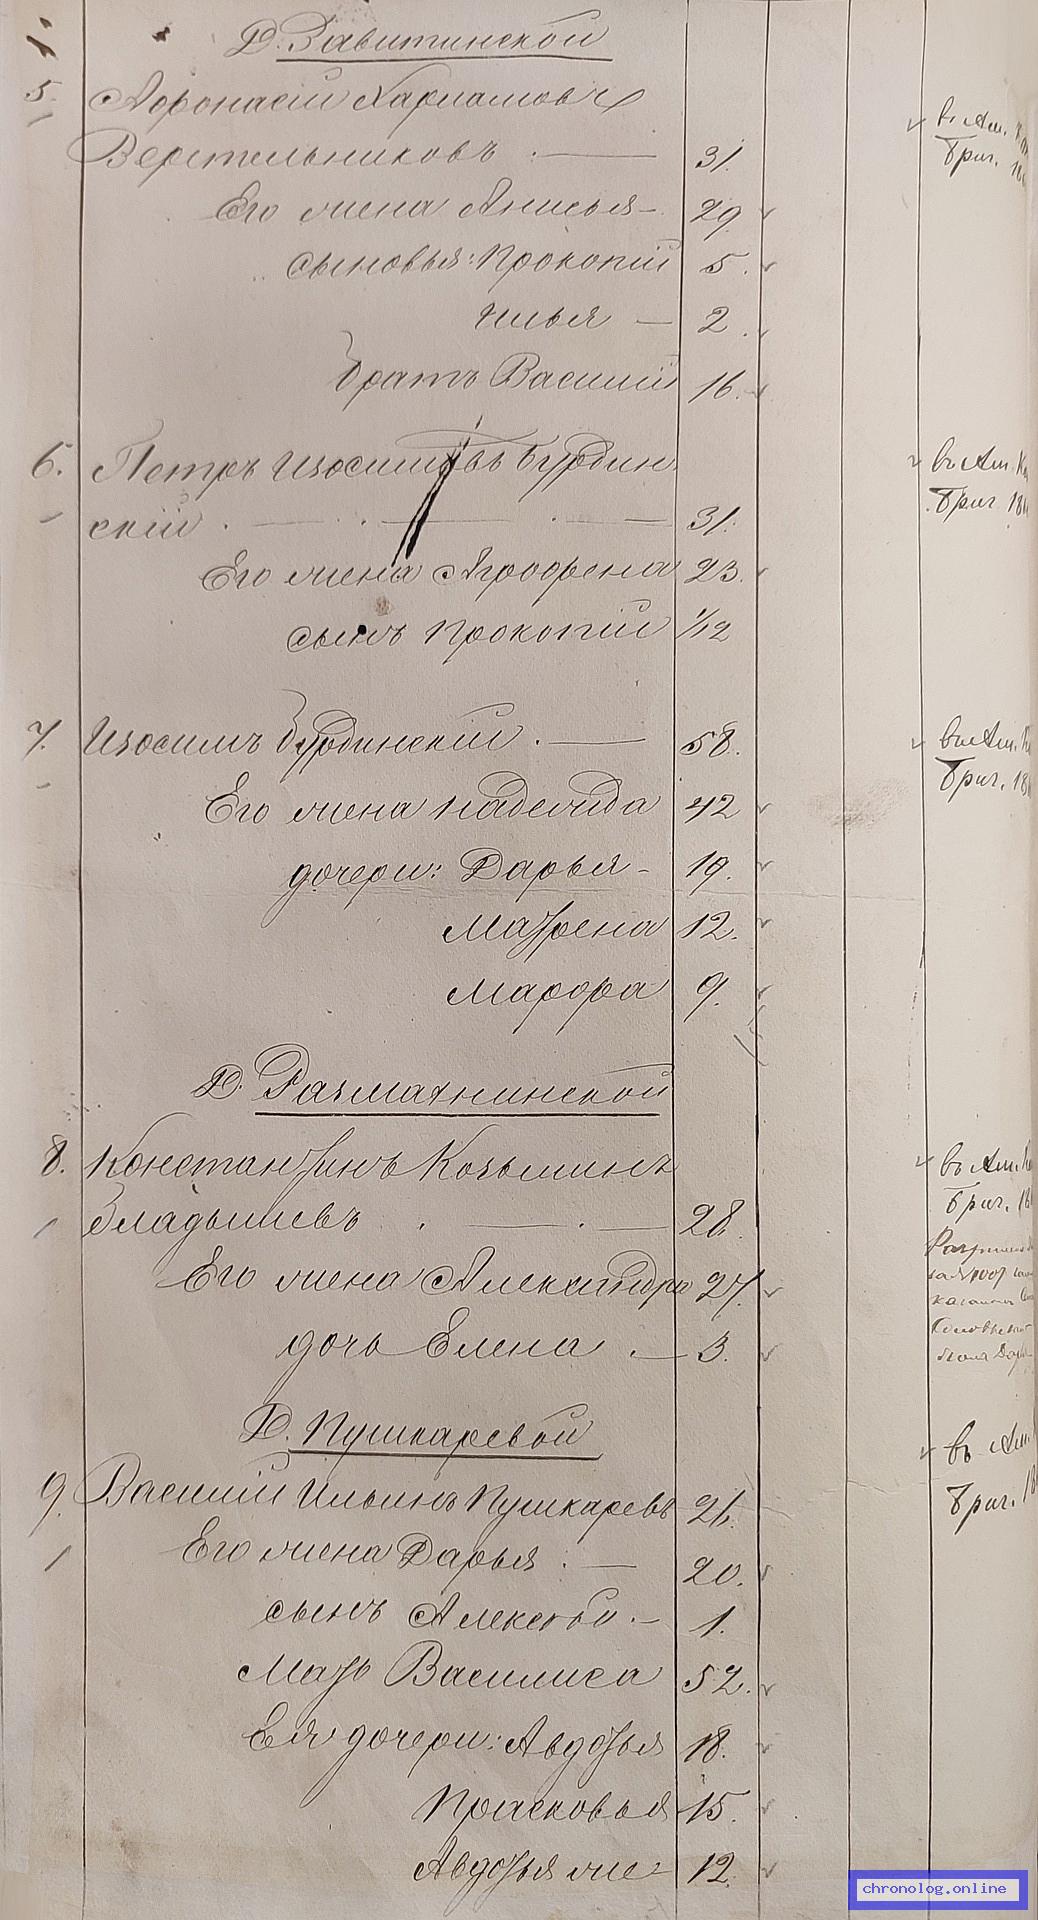 Д. Завитинской
5. Афонасій Харламовъ
Веретельниковъ 31.
Его жена Анисья 29
сыновья: Прокопій 5.
Илья 2.
братъ Василій 16.
6. Петръ Изосимовъ Бурдин
скій 31.
Его жена Агрофена 23.
сынъ Прокопій 1/12
7. Изосимъ Бурдинскій 58.
Его жена Надежда 42
дочери: Дарья 19.
Матрена 12.
Марфра 9.
Д. Размахнинской
8. Константинъ Козьминъ
Эладышевъ 28.
Его жена Александра 27.
дочь Елена 3.
Д. Пушкаревой
9. Василій Ильинъ Пушкаревъ 21.
Его жена Дарья 20.
сынъ Алексѣй 1.
Мать Василиса 52.
Ея дочери: Авдотья 18.
Прасковья 15.
Авдотья же 12.
въ Ам.
бриг.
въ Ам.
бриг. 18
въ Ам.
бриг. 18
въ Ам.
бриг. 18
въ Ам.
бриг. 18
chronolog.online